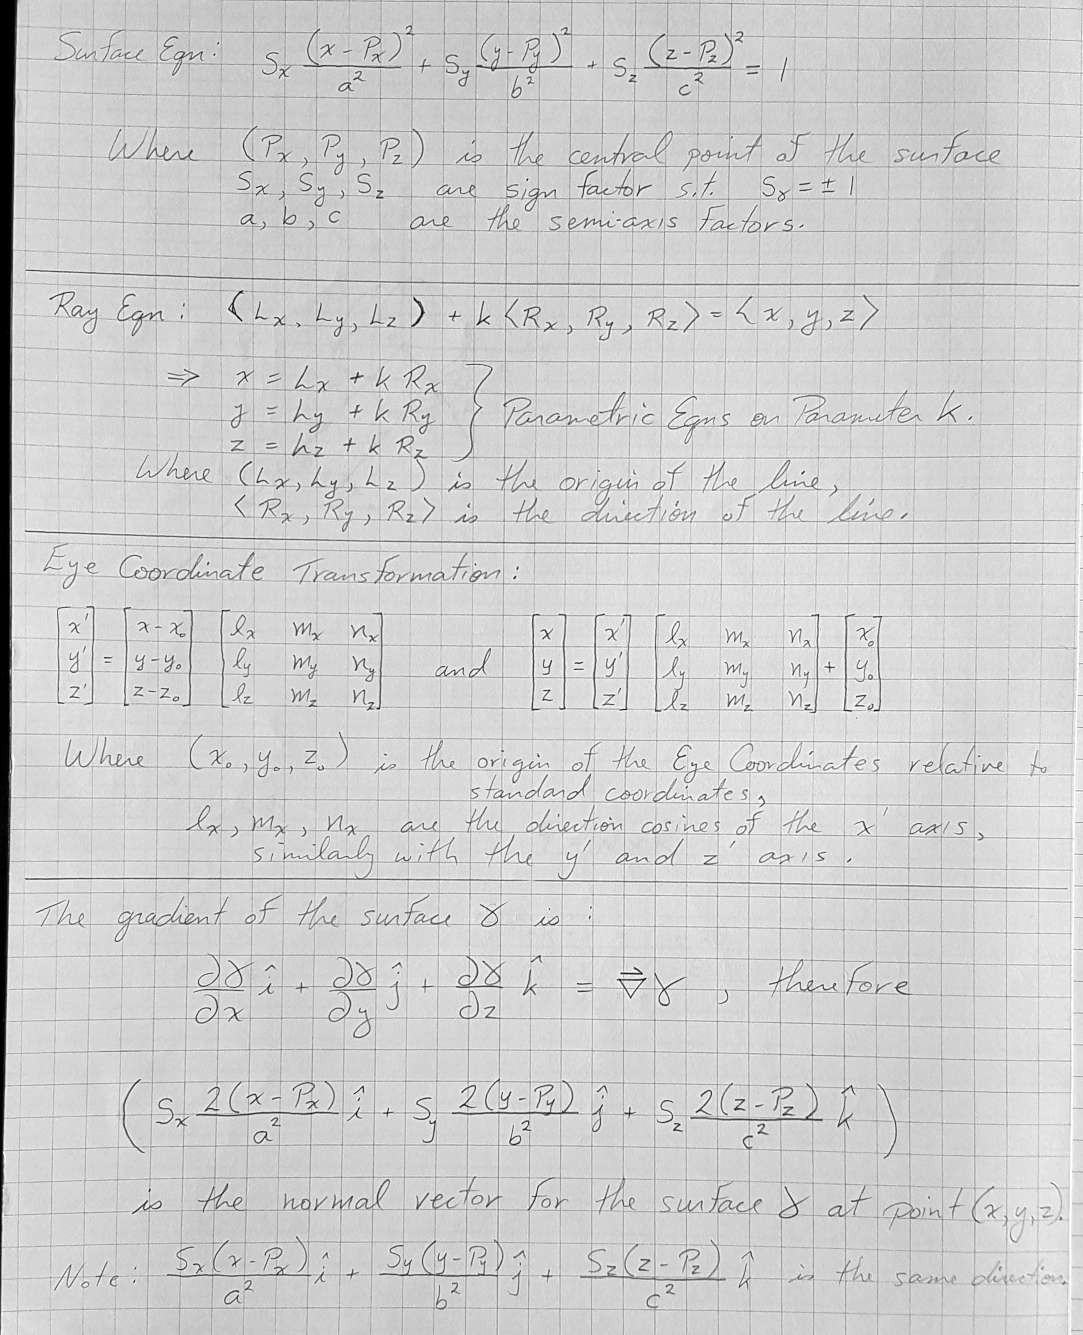 Surface Eqn: Sx (x - Px)²/a² + Sy (y - Py)²/b² + Sz (z - Pz)²/c² = 1
Where (Px, Py, Pz) is the central point of the surface
Sx, Sy, Sz are sign factor s.t. Sγ = ± 1
a, b, c are the semi-axis factors.
Ray Eqn: (Lx, Ly, Lz) + k ⟨Rx, Ry, Rz⟩ = ⟨x, y, z⟩
⇒ x = Lx + k Rx
y = Ly + k Ry } Parametric Eqns on Parameter k.
z = Lz + k Rz
Where (Lx, Ly, Lz) is the origin of the line,
⟨Rx, Ry, Rz⟩ is the direction of the line.
Eye Coordinate Transformation:
[x'] [x - x₀] [lx mx nx] [x] [x'] [lx mx nx] [x₀]
[y'] = [y - y₀] [ly my ny] and [y] = [y'] [ly my ny] + [y₀]
[z'] [z - z₀] [lz mz nz] [z] [z'] [lz mz nz] [z₀]
Where (x₀, y₀, z₀) is the origin of the Eye Coordinates relative to
standard coordinates,
lx, mx, nx are the direction cosines of the x' axis,
similarly with the y' and z' axis.
The gradient of the surface γ is:
∂γ/∂x î + ∂γ/∂y ĵ + ∂γ/∂z k̂ = ∇⃗γ, therefore
(Sx 2(x - Px)/a² î + Sy 2(y - Py)/b² ĵ + Sz 2(z - Pz)/c² k̂)
is the normal vector for the surface γ at point (x, y, z).
Note: Sx(x - Px)/a² î + Sy(y - Py)/b² ĵ + Sz(z - Pz)/c² k̂ is the same direction.